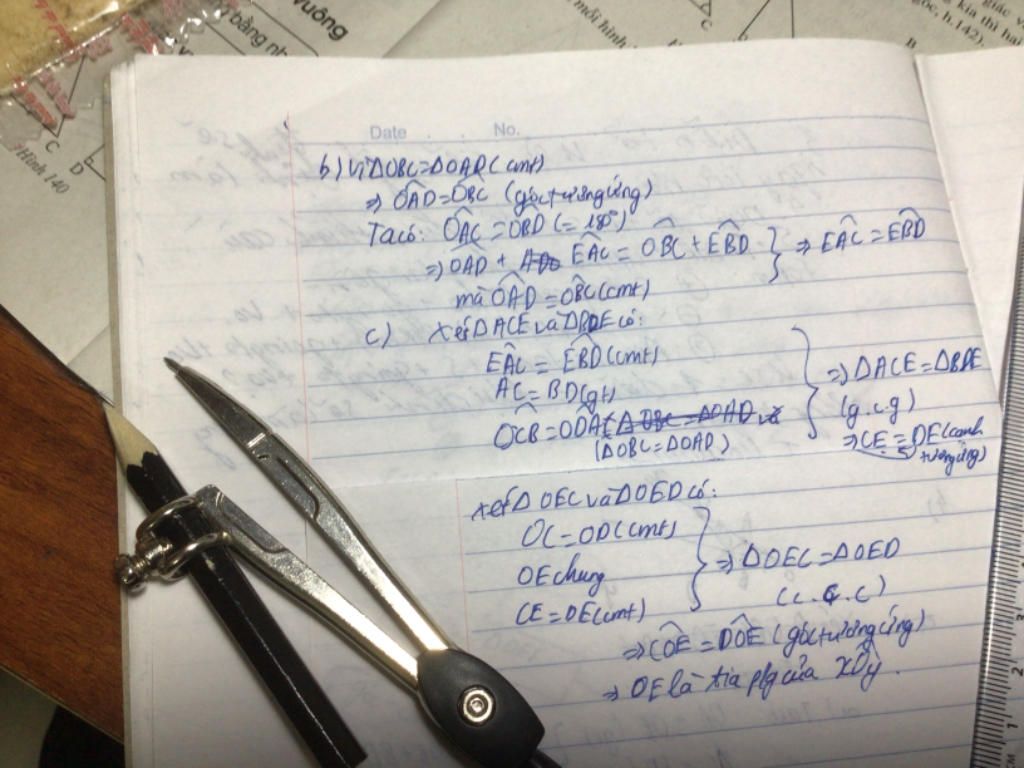 vuông
bằng nh
mỗi hình
kia thì hai
góc, h.142).
C
B
C
D
Hình 140
Date . . No.
b) Vì ΔOBC=ΔOAD (cmt)
⇒ OÂD=OB̂C (góc tương ứng)
Ta có: OÂC=OB̂D (=180°)
⇒ OAD + EÂC = OB̂C + EB̂D } ⇒ EÂC=EB̂D
mà OÂD=OB̂C (cmt)
c) xét ΔACE và ΔBDE có:
EÂC = EB̂D (cmt)
AC=BD (gt)
OĈB=OD̂A (ΔOBC=ΔOAD vì
(ΔOBC=ΔOAD)
⇒ ΔACE=ΔBDE
(g.c.g)
⇒ CE=DE (cạnh
tương ứng)
xét ΔOEC và ΔOED có:
OC=OD (cmt)
OE chung
CE=DE (cmt)
⇒ ΔOEC=ΔOED
(c.c.c)
⇒ CÔE=DÔE (góc tương ứng)
⇒ OE là tia p/g của xÔy.